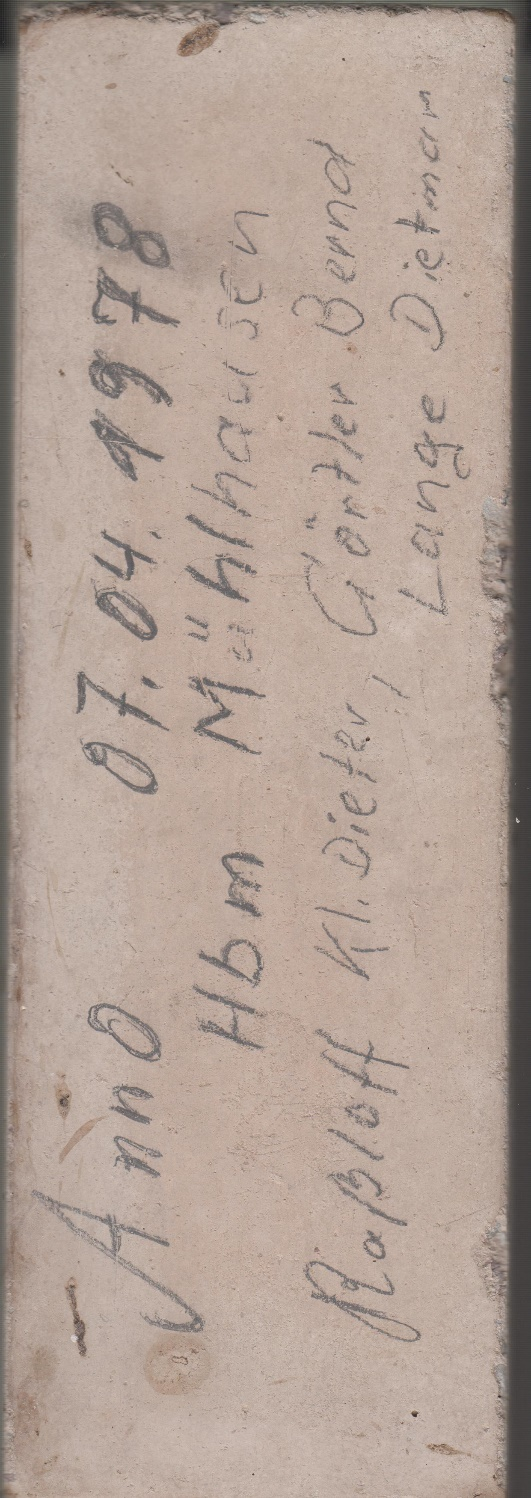 Anno 07.04.1978
Hbm Mühlhausen
Raßloff Kl. Dieter, Görtler Bernd
Lange Dietmar